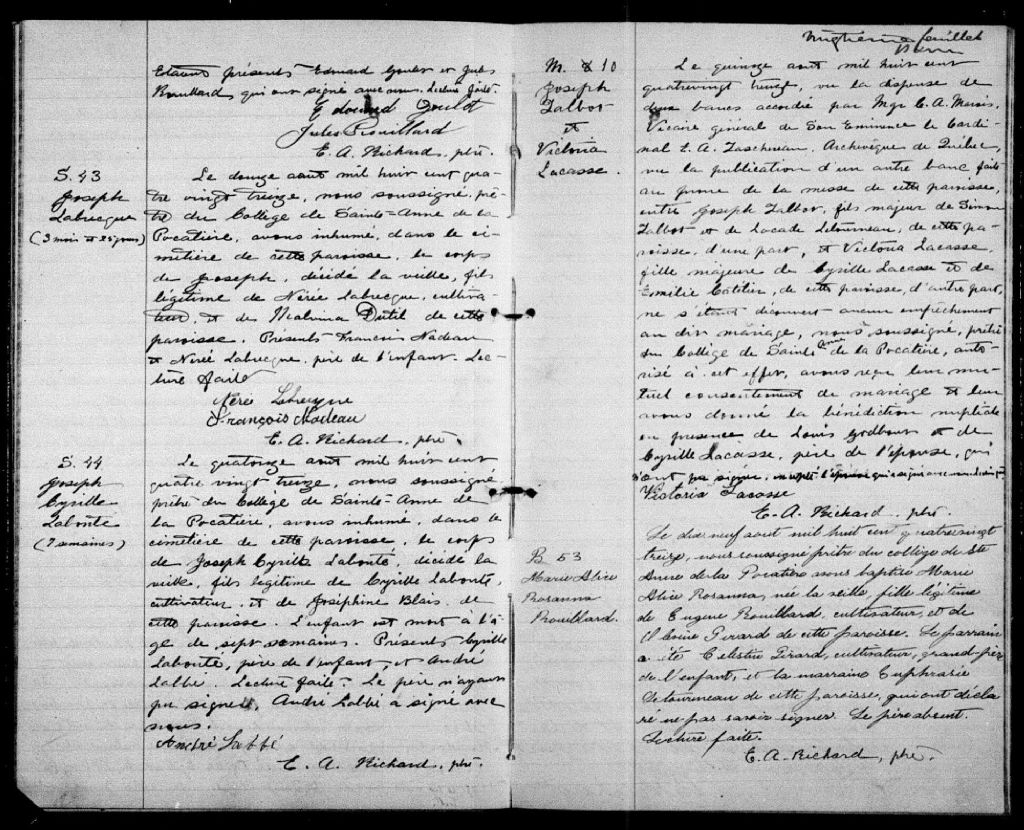 Etaient présents Edouard Goulet et Jules
Rouillard qui ont signé avec nous. Lecture faite.
Edouard Goulet
Jules Rouillard
E. A. Richard, ptre.
S. 43
Joseph
Labrecque
(3 mois et 25 jours)
Le douze août mil huit cent qua-
tre vingt treize, nous soussigné, prê-
tre du Collège de Sainte-Anne de la
Pocatière, avons inhumé, dans le ci-
metière de cette paroisse, le corps
de Joseph, décédé la veille, fils
légitime de Nérée Labrecque, cultiva-
teur, et de Malvina Dutil de cette
paroisse. Présents François Nadeau
et Nérée Labrecque, père de l'enfant. Lec-
ture faite
Nérée Labrecque
François Nadeau
E. A. Richard, ptre.
S. 44
Joseph
Cyrille
Labonté
(7 semaines)
Le quatorze août mil huit cent
quatre vingt treize, nous soussigné
prêtre du Collège de Sainte-Anne de
la Pocatière, avons inhumé, dans le
cimetière de cette paroisse, le corps
de Joseph Cyrille Labonté, décédé la
veille, fils légitime de Cyrille Labonté,
cultivateur, et de Joséphine Blais, de
cette paroisse. L'enfant est mort à l'â-
ge de sept semaines. Présents Cyrille
Labonté, père de l'enfant, et André
Labbé. Lecture faite. Le père n'ayant
pu signer, André Labbé a signé avec
nous.
André Labbé
E. A. Richard, ptre.
Vingtième feuillet
M. 10
Joseph
Talbot
et
Victoria
Lacasse.
Le quinze août mil huit cent
quatrevingt treize, vu la dispense de
deux bancs accordé par Mgr C. A. Marois,
Vicaire général de Son Eminence le Cardi-
nal E. A. Taschereau, Archevêque de Québec,
vu la publication d'un autre banc faite
au prône de la messe de cette paroisse,
entre Joseph Talbot, fils majeur de Simon
Talbot et de Locade Létourneau, de cette pa-
roisse, d'une part, et Victoria Lacasse
fille majeure de Cyrille Lacasse et de
Emilie Catilier, de cette paroisse, d'autre part,
ne s'étant découvert aucun empêchement
au dix mariage, nous soussigné, prêtre
du Collège de Sainte Anne de la Pocatière, auto-
risé à cet effet, avons reçu leur mu-
tuel consentement de mariage et leur
avons donné la bénédiction nuptiale
en présence de Louis Godbout et de
Cyrille Lacasse, père de l'épouse, qui
n'ont pu signer, excepté l'épouse qui a signé avec nous
Victoria Lacasse
E. A. Richard, ptre.
B 53
Marie Alice
Rosanna
Rouillard.
Le dix neuf août mil huit cent quatrevingt
treize, nous soussigné prêtre du collège de Ste
Anne de la Pocatière avons baptisé Marie
Alice Rosanna, née la veille, fille légitime
de Eugène Rouillard, cultivateur, et de
Girard de cette paroisse. Le parrain
a été Célestin Girard, cultivateur, grand-père
de l'enfant, et la marraine Euphrasie
Létourneau de cette paroisse, qui ont décla-
ré ne pas savoir signer. Le père absent.
Lecture faite.
E. A. Richard, ptre.